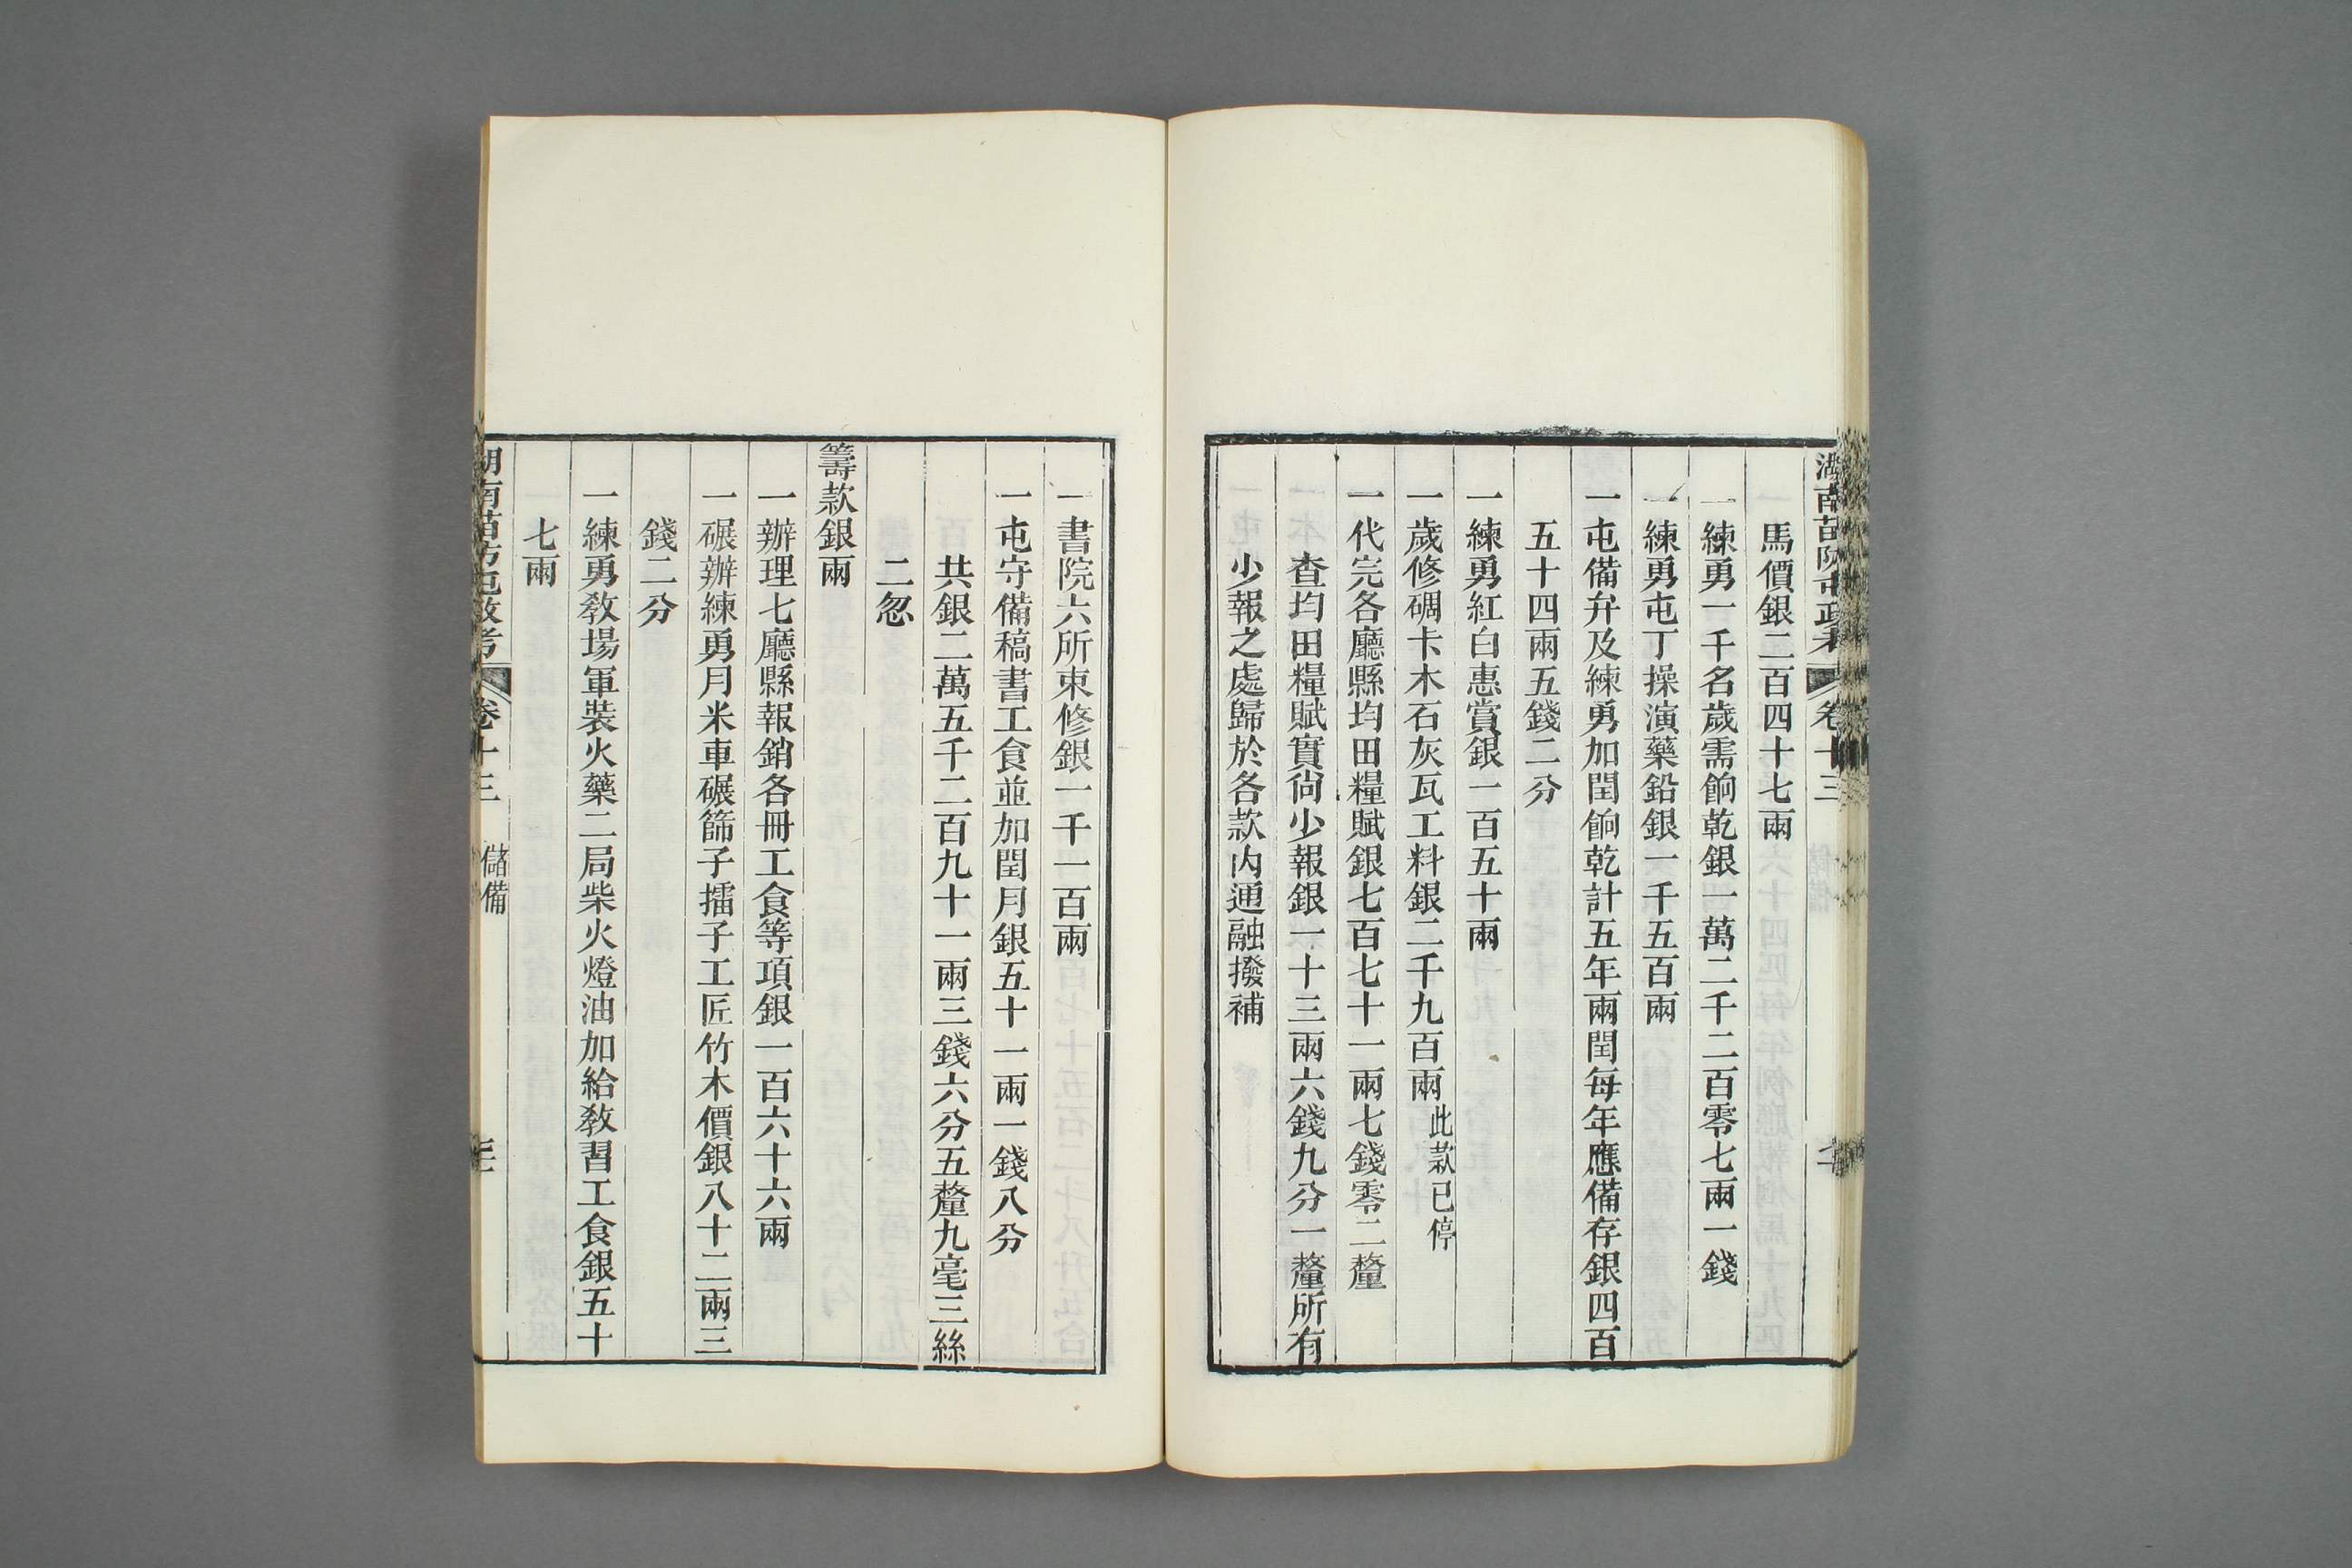 湖南苗防屯政考 卷十三 儲備 二
馬價銀二百四十七兩
一練勇一千名歲需餉乾銀一萬二千二百零七兩一錢
一練勇屯丁操演藥鉛銀一千五百兩
一屯備弁及練勇加閏餉乾計五年兩閏每年應備存銀四百
五十四兩五錢二分
一練勇紅白惠賞銀一百五十兩
一歲修碉卡木石灰瓦工料銀二千九百兩此款已停
一代完各廳縣均田糧賦銀七百七十一兩七錢零二釐
查均田糧賦實尙少報銀一十三兩六錢九分一釐所有
少報之處歸於各款內通融撥補
一書院六所束修銀一千一百兩
一屯守備稿書工食並加閏月銀五十一兩一錢八分
共銀二萬五千二百九十一兩三錢六分五釐九毫三絲
二忽
籌款銀兩
一辦理七廳縣報銷各冊工食等項銀一百六十六兩
一碾辦練勇月米車碾篩子擂子工匠竹木價銀八十二兩三
錢二分
一練勇敎場軍裝火藥二局柴火燈油加給敎習工食銀五十
七兩
湖南苗防屯政考 卷十三 儲備 三